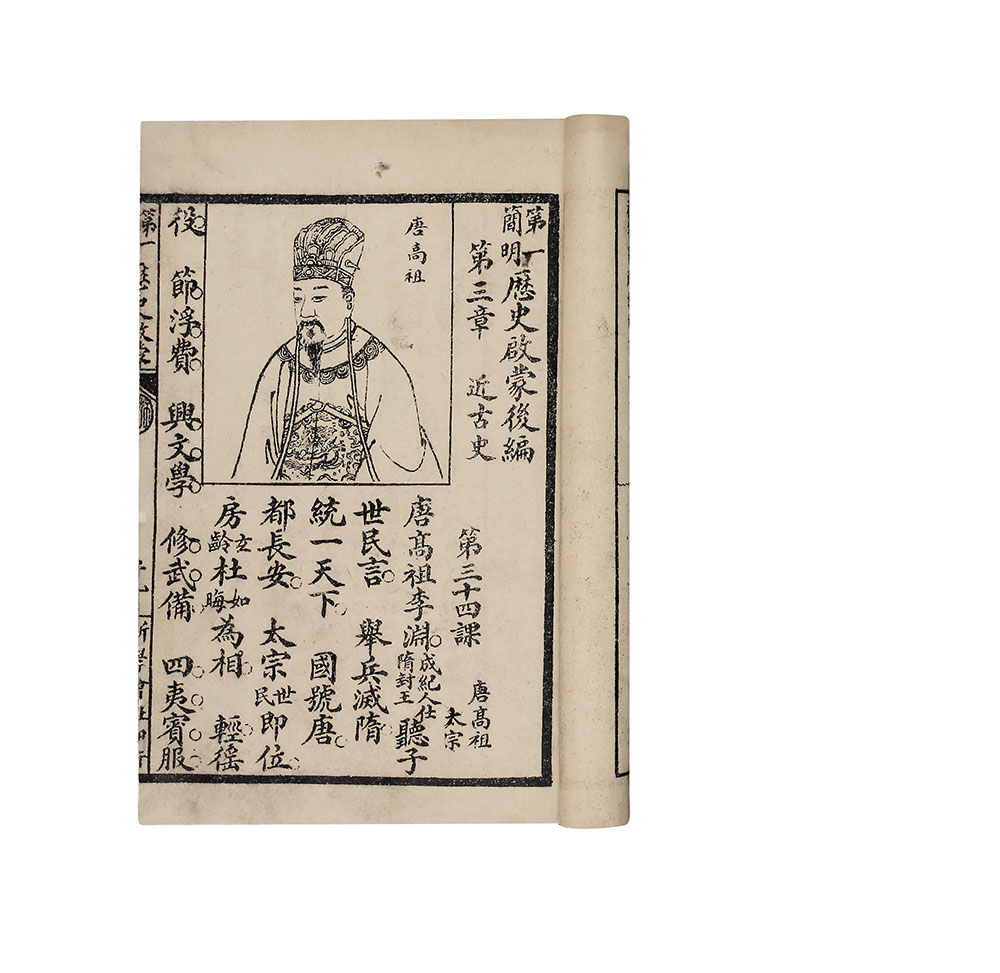 第一簡明歷史啟蒙後編
第三章 近古史
第三十四課 唐髙祖 太宗
唐高祖
唐髙祖李淵。成紀人仕隋封王聽子
世民言。舉兵滅隋
統一天下。國號唐。
都長安。太宗世民即位。
房玄齡杜如晦為相。輕徭
役。節浮費。興文學。修武備。四夷賓服。
第一 歷史啟蒙
新學會社